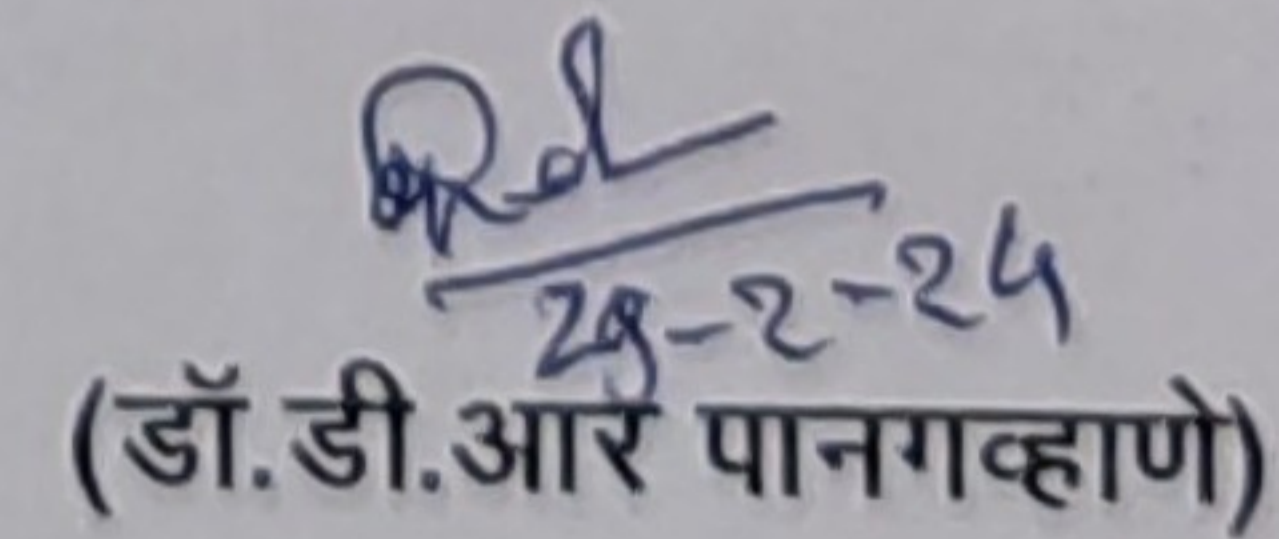 29-2-24
(डॉ.डी.आर पानगव्हाणे)